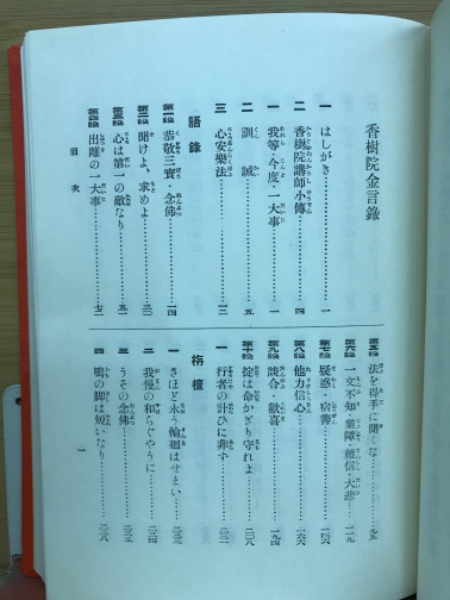 香樹院金言錄
一 はしがき……一
二 香樹院講師小傳……四
一 我等・今度・一大事
二 訓誡……五
三 心安樂法……一二
語錄
第一 恭敬三寶・念佛……一四
第二 聞けよ、求めよ……三〇
第三 心は第一の敵なり……五一
第四 出離の一大事……七二
目次
第五 法を得手に聞くな……九五
第六 一文不知・業障・難信・大悲……一一九
第七 疑惑・宿善……一四六
第八 他力信心……一六六
第九 談合・歡喜……一九四
第十 掟は命かぎり守れよ……二〇八
一 行者の計ひに非ず……二二一
栴檀
一 さほど永う輪廻はせまい……二三三
二 我慢の和らぐやうに……二三四
三 うその念佛……二三五
四 鴨の脚は短いなり……二三八
一